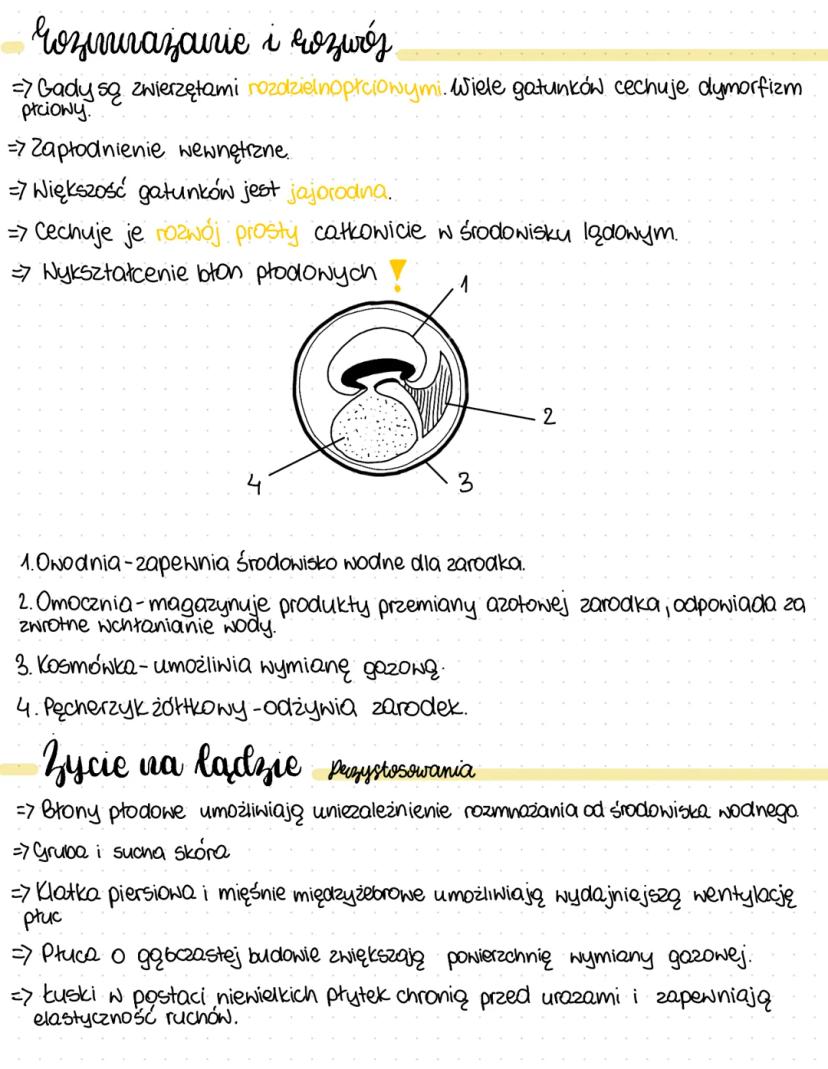 Rozmnażanie i rozwój
=> Gady są zwierzętami rozdzielnopłciowymi. Wiele gatunków cechuje dymorfizm
płciowy.
=> Zapłodnienie wewnętrzne.
=> Większość gatunków jest jajorodna.
=> Cechuje je rozwój prosty całkowicie w środowisku lądowym.
=> Wykształcenie błon płodowych !
1
2
3
4
1. Owodnia - zapewnia środowisko wodne dla zarodka.
2. Omocznia - magazynuje produkty przemiany azotowej zarodka, odpowiada za
zwrotne wchłanianie wody.
3. Kosmówka - umożliwia wymianę gazową.
4. Pęcherzyk żółtkowy - odżywia zarodek.
Życie na lądzie Przystosowania
=> Błony płodowe umożliwiają uniezależnienie rozmnażania od środowiska wodnego
=> Gruba i sucha skóra
=> Klatka piersiowa i mięśnie międzyżebrowe umożliwiają wydajniejszą wentylację
płuc
=> Płuca o gąbczastej budowie zwiększają powierzchnię wymiany gazowej.
=> Łuski w postaci niewielkich płytek chronią przed urazami i zapewniają
elastyczność ruchów.